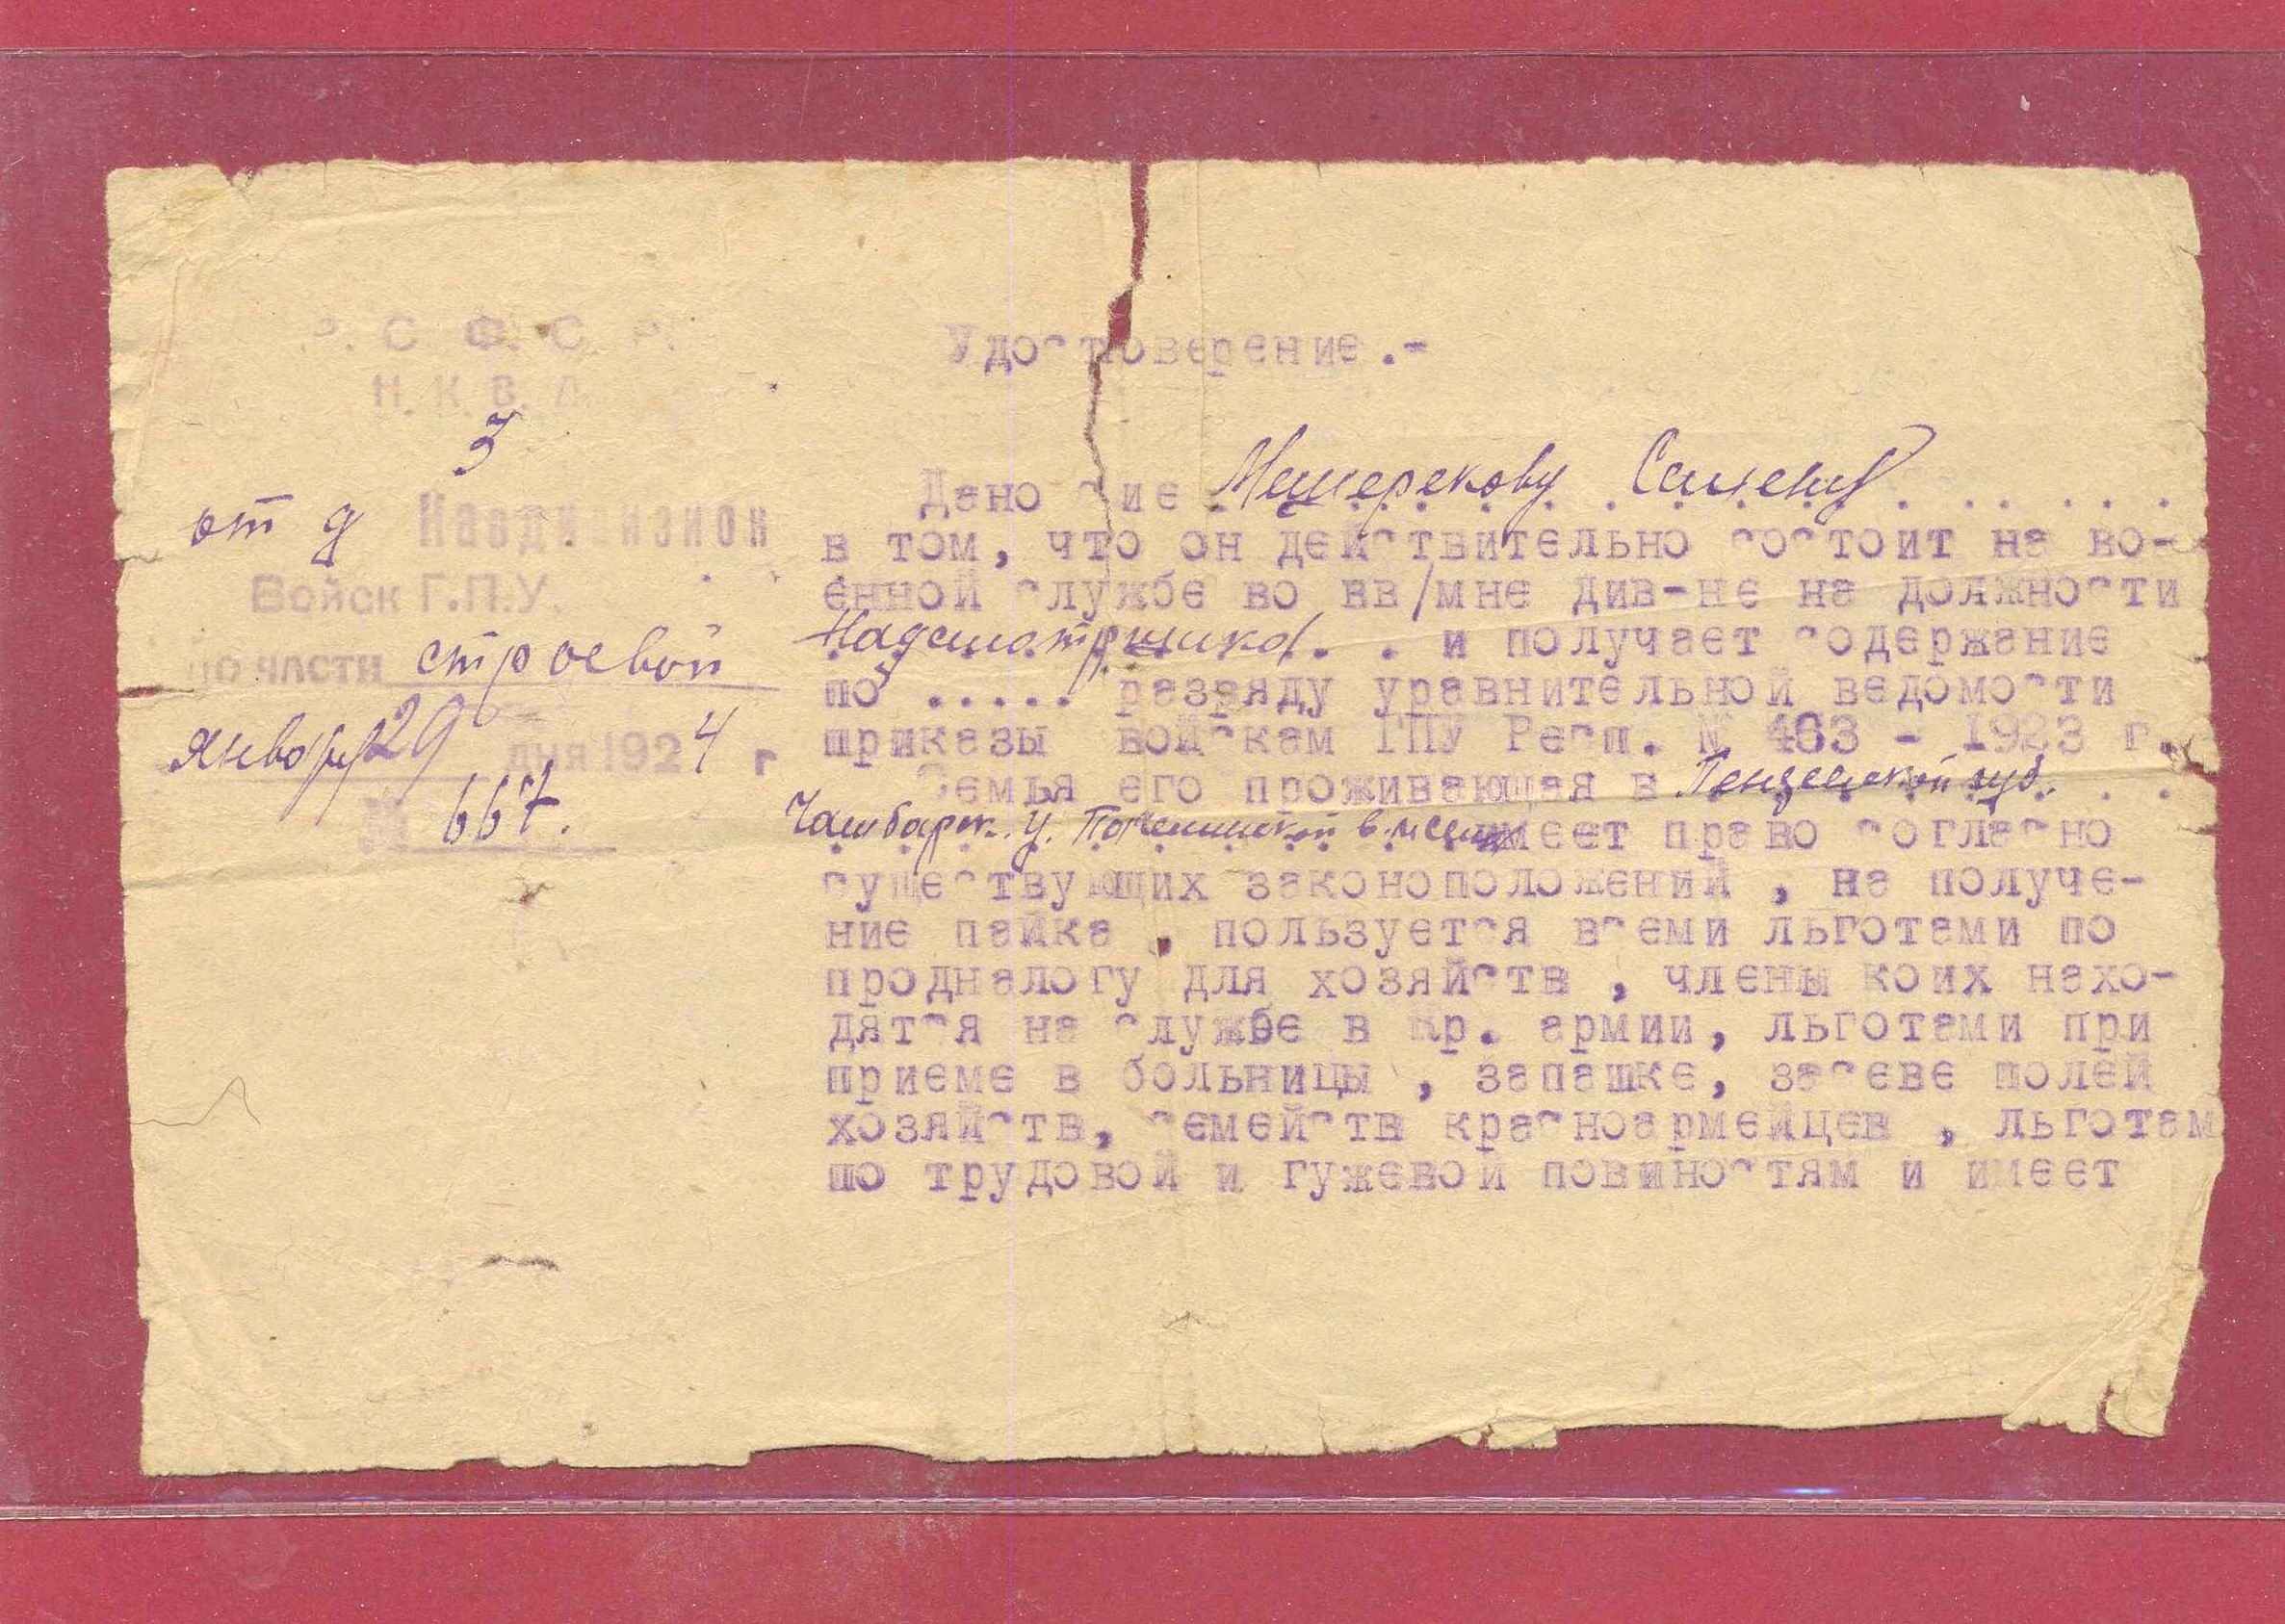 Р. С. Ф. С. Р.
Н. К. В. Д.
3
от д Кавди изион
Войск Г.П.У.
по части строевой
января 29 дня 1924 г
№ 667.
Удостоверение.-
Дано сие Мещерекову Семену
в том, что он действительно состоит на во-
енной службе во вв/мне див-не на должности
Надсмотрщика . . и получает содержание
по ..... разряду уравнительной ведомости
приказы войскам ГПУ Респ. № 463 - 1923 г.
Семья его проживающая в Пензенской губ.
Чембарск. у. Поченской в. имеет право согласно
существующих законоположений , на получе-
ние пайка , пользуется всеми льготами по
продналогу для хозяйств , члены коих нахо-
дятся на службе в кр. армии, льготами при
приеме в больницы , запашке, засеве полей
хозяйств, семейств красноармейцев , льготам
по трудовой и гужевой повиностям и имеет